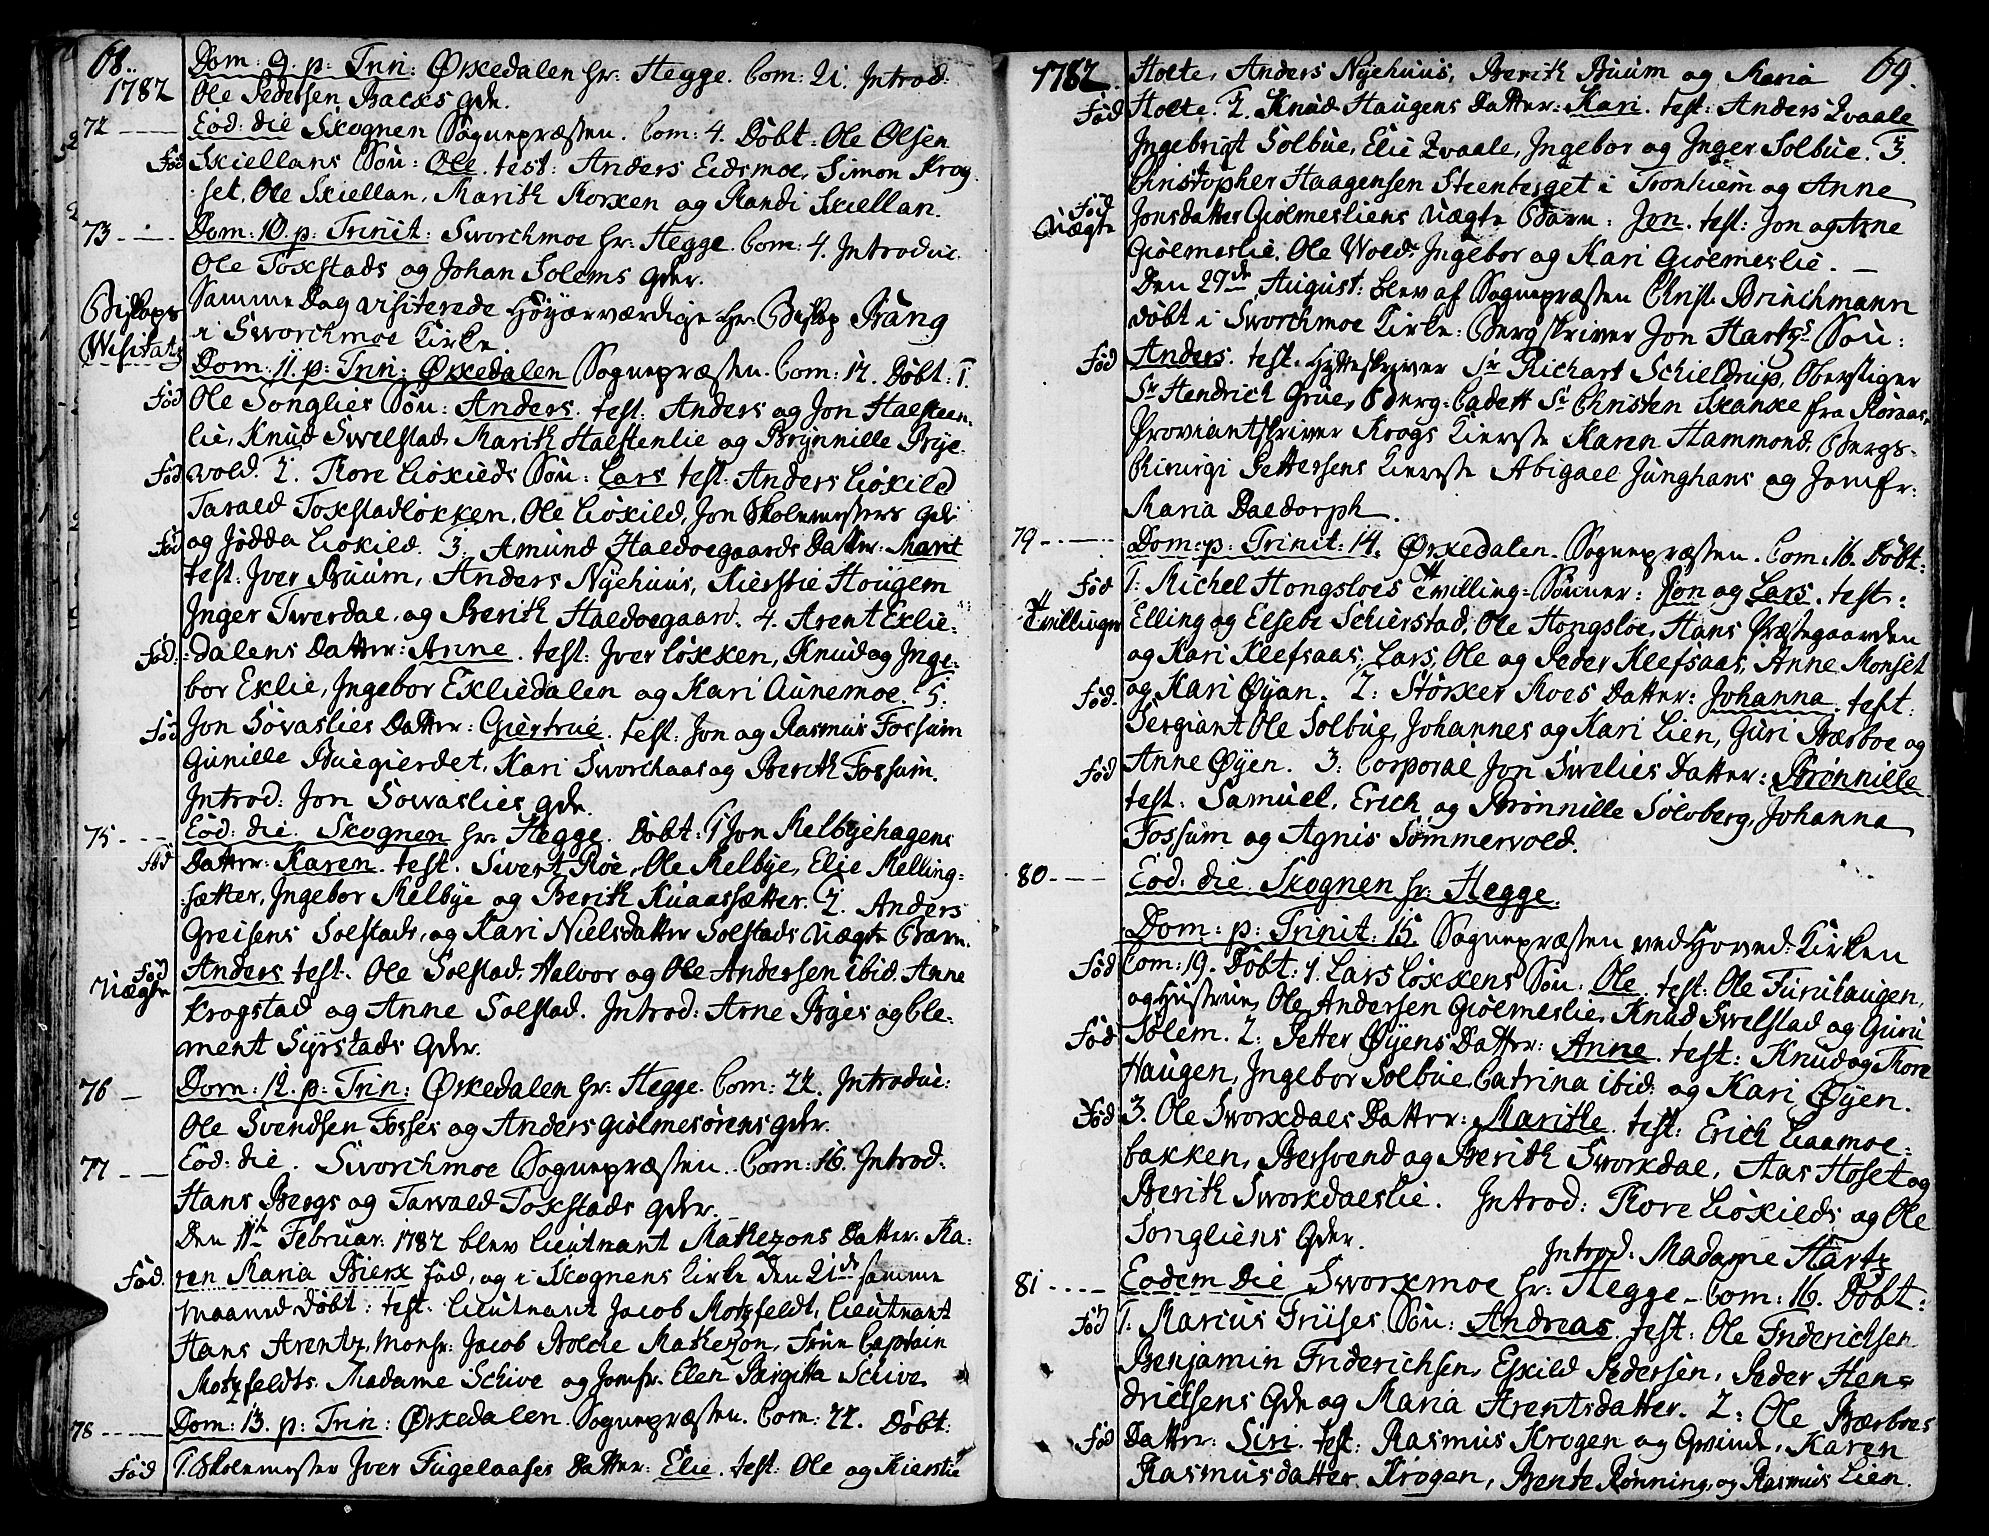 68.
1782
Dom: 9. p: Trin: Ørkedalen hr: Hegge. Com: 21. Introd:
Ole Pedersen Backs qde.
72 Eod: die Skognen Sognepræsten. Com: 4. Döbt: Ole Olsen
Fød Skiellans Sön: Ole. test: Anders Eidsmoe, Simon Krog-
set, Ole Skiellan, Marith Korken og Randi Skiellan.
73 Dom: 10. p: Trinit: Sworchmoe hr: Hegge. Com: 4. Introduc.
Ole Tokstads og Johan Solems qdr.
Bispops Samme Dag visiterede Höyærværdige Hr. Biskop Bang
Wisitats i Sworchmoe Kirke.
Dom: 11. p: Trin: Ørkedalen Sognepræsten. Com: 12. Döbt: 1.
Fød Ole Songlies Sön: Anders. test: Anders og Jon Haelsteen-
lie, Knud Swelstad, Marith Haelstenlie og Brynnille Brye-
Fød wold. 2. Tore Liökilds Sön: Lars test: Anders Liökild
Tarald Tokstadlökken, Ole Liökild, Jon Skolemesters qde
Fød og Jödda Liökild. 3. Amund Haldoegaards Datter: Marit
test: Jver Buum, Anders Nyehuus, Kierstie Hougem
Inger Twerdal, og Berith Haldoegaard. 4. Arent Eklie-
Fød: dalens Datter: Anne. test: Jver Lökken, Knud og Inge-
bor Eklie, Ingebor Ekliedalen og Kari Aunemoe. 5.
Fød Jon Sövaslies Datter: Giertrue. test: Jon og Rasmus Fossum
Gunille Buegierdet, Kari Sworchaas og Berith Fossum.
Introd: Jon Sowaslies qdr.
75 Eod: die. Skognen hr: Hegge. Döbt: 1 Jon Melbyehagens
Fød Datter: Karen. test. Siwert Roe, Ole Melbye, Elie Melling-
sætter, Ingebor Melbye og Berith Kuaassætter. 2. Anders
Greisens Solstads, og Kari Nielsdatter Solstads Uægte Barn.
Fød Uægte Anders test. Ole Solstad, Halvor og Ole Andersen ibid. Anne
Krogstad og Anne Solstad. Introd: Arne Byes og Cle-
ment Syrstads qdr.
76 Dom: 12. p: Trin: Ørkedalen hr: Hegge. Com: 22. Introduc:
Ole Svendsen Fosses og Anders Giölmesörens qdr.
77 Eod: die. Sworchmoe Sognepræsten. Com: 16. Introd:
Hans Bergs og Tarvald Tokstads qdr.
Den 11te Februar: 1782 blev Lieutnant Mathezons Datter. Ka-
Fød. ren Maria Bierk fød, og i Skognens Kirke den 21de samme
maaned Döbt: test. Lieutnant Jacob Motzfeldt, Lieutnant
Hans Arentz, Monsr: Jacob Bolde Mathezon, Frue Captain
Motzfeldts. Madame Schive og Jomfr. Elen Birgitta Schive.
78 Dom: 13. p: Trin: Ørkedalen. Sognepræsten. Com: 22. Döbt:
Fød 1. Skolemester Jver Fugelaases Datter: Elie. test: Ole og Kierstie
1782. 69.
Holte, Anders Nyehuus, Berith Buum og Maria
Fød Holte. 2. Knud Haugens Datter: Kari. test: Anders Qvaale
Ingebrigt Solbue, Elie Qvaale, Ingebor og Inger Solbue. 3.
Christopher Haagensen Steenberget i Tronhiem og Anne
Fød Uægte Jonsdatter Giölmesliens Uægte Barn: Jon. test: Jon og Arne
Giölmeslie, Ole Wold, Ingebor og Kari Giölmeslie.
Den 27de August: blev af Sognepræsten Christ: Brinchmann
döbt i Sworchmoe Kirke: Bergskriver Jon Hartzs Sön:
Fød Anders. test. Hytteskriver Sr Richart Schieldrup, Oberstiger
Sr Hendrich Grue, Berg-Cadett Sr Christen Skanke fra Röraas,
Proviantskriver Krogs Kierste Karen Hammond, Bergs-
Chirurgi Pettersens Kierste Abigael Junghans og Jomfr:
Maria Daldorph.
79 Dom: p: Trinit: 14. Ørkedalen. Sognepræsten. Com: 16. Döbt:
Fød Tvillinger 1: Michel Hongsloes Tvilling-Sönner: Jon og Lars. test:
Elling og Elsebe Schierstad, Ole Hongsloe, Hans Præstegaarden
og Kari Klefsaas, Lars, Ole og Peder Klefsaas, Anne Monset
Fød. og Kari Øyan. 2: Störker Moes Datter: Johanna. test:
Sergiant Ole Solbue, Johannes og Kari Lien, Guri Bærboe og
Fød Anne Øyen. 3: Corporal Jon Swelies Datter: Brönnille
test: Samuel, Erich og Brönnille Sölvberg, Johanna
Fossum og Agnis Sömmervold.
80 Eod: die. Skognen hr: Hegge.
Dom: p: Trinit: 15. Sognepræsten ved Hoved-Kirken
Fød Com: 19. Döbt: 1. Lars Lökkens Sön. Ole. test: Ole Furuhaugen,
og Hustrue, Ole Andersen Giölmeslie, Knud Swelstad og Guru
Fød Solem. 2: Petter Øyens Datter: Anne. test: Knud og Tore
Haugen, Ingebor Solbue, Catrina ibid: og Kari Øyen.
Fød 3. Ole Sworkdals Datter: Marithe. test: Erich Laamoe-
bakken, Bersvend og Berith Sworkdal, Aas Hoset og
Berith Sworkdalslie. Introd: Tore Liökilds og Ole
Songliens qdr.
Introd: Madame Hartz
81 Eodem Die Sworkmoe hr: Hegge. Com: 16. Döbt:
Fød 1: Marcus Friises Sön: Andreas. test: Ole Friderichsen
Benjamin Friderichsen, Eskild Pedersen, Peder Hen-
drichsens qde og Maria Arentsdatter. 2: Ole Bærboes
Fød Datter: Siri. test: Rasmus Krogen og Qvinde, Karen
Rasmusdatter Krogen, Bente Rönning, og Rasmus Lien.